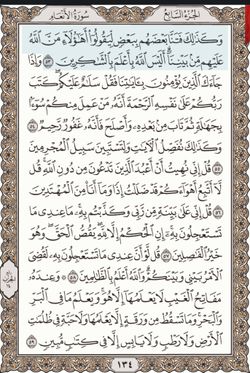 الجزء السابع سورة الأنعام
وَكَذَٰلِكَ فَتَنَّا بَعْضَهُم بِبَعْضٍ لِّيَقُولُوٓا۟ أَهَٰٓؤُلَآءِ مَنَّ ٱللَّهُ
عَلَيْهِم مِّنۢ بَيْنِنَآ ۗ أَلَيْسَ ٱللَّهُ بِأَعْلَمَ بِٱلشَّٰكِرِينَ ٥٣ وَإِذَا
جَآءَكَ ٱلَّذِينَ يُؤْمِنُونَ بِـَٔايَٰتِنَا فَقُلْ سَلَٰمٌ عَلَيْكُمْ ۖ كَتَبَ
رَبُّكُمْ عَلَىٰ نَفْسِهِ ٱلرَّحْمَةَ ۖ أَنَّهُۥ مَنْ عَمِلَ مِنكُمْ سُوٓءًۢا
بِجَهَٰلَةٍ ثُمَّ تَابَ مِنۢ بَعْدِهِۦ وَأَصْلَحَ فَأَنَّهُۥ غَفُورٌ رَّحِيمٌ ٥٤
وَكَذَٰلِكَ نُفَصِّلُ ٱلْـَٔايَٰتِ وَلِتَسْتَبِينَ سَبِيلُ ٱلْمُجْرِمِينَ
٥٥ قُلْ إِنِّى نُهِيتُ أَنْ أَعْبُدَ ٱلَّذِينَ تَدْعُونَ مِن دُونِ ٱللَّهِ ۚ قُل
لَّآ أَتَّبِعُ أَهْوَآءَكُمْ ۙ قَدْ ضَلَلْتُ إِذًا وَمَآ أَنَا۠ مِنَ ٱلْمُهْتَدِينَ
٥٦ قُلْ إِنِّى عَلَىٰ بَيِّنَةٍ مِّن رَّبِّى وَكَذَّبْتُم بِهِۦ ۚ مَا عِندِى مَا
تَسْتَعْجِلُونَ بِهِۦٓ ۚ إِنِ ٱلْحُكْمُ إِلَّا لِلَّهِ ۖ يَقُصُّ ٱلْحَقَّ ۖ وَهُوَ
خَيْرُ ٱلْفَٰصِلِينَ ٥٧ قُل لَّوْ أَنَّ عِندِى مَا تَسْتَعْجِلُونَ بِهِۦ لَقُضِىَ
ٱلْأَمْرُ بَيْنِى وَبَيْنَكُمْ ۗ وَٱللَّهُ أَعْلَمُ بِٱلظَّٰلِمِينَ ٥٨ ۞ وَعِندَهُۥ
مَفَاتِحُ ٱلْغَيْبِ لَا يَعْلَمُهَآ إِلَّا هُوَ ۚ وَيَعْلَمُ مَا فِى ٱلْبَرِّ
وَٱلْبَحْرِ ۚ وَمَا تَسْقُطُ مِن وَرَقَةٍ إِلَّا يَعْلَمُهَا وَلَا حَبَّةٍ فِى ظُلُمَٰتِ
ٱلْأَرْضِ وَلَا رَطْبٍ وَلَا يَابِسٍ إِلَّا فِى كِتَٰبٍ مُّبِينٍ ٥٩
١٣٤